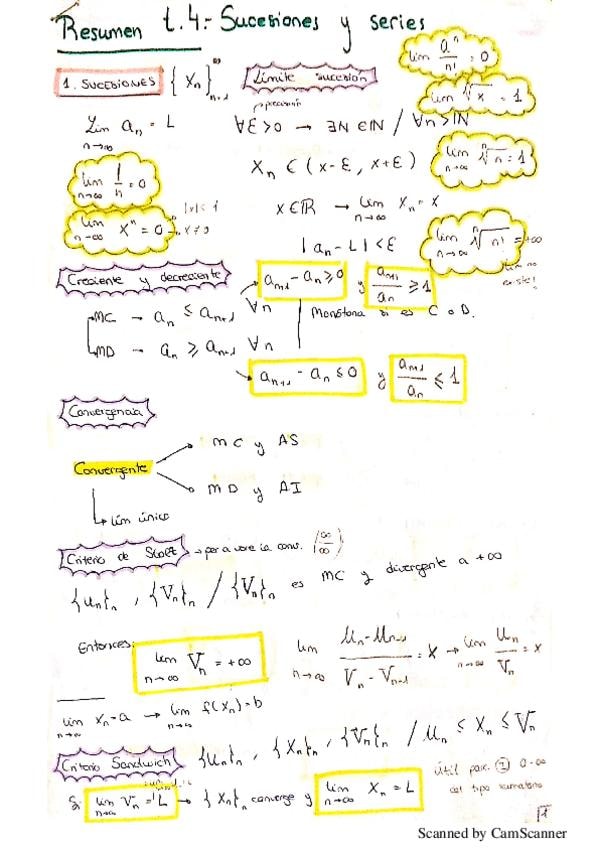 Resumen t.4: Sucesiones y series
lim aⁿ/n! = 0
1. SUCESIONES {Xn}^∞ n=1 Límite sucesión
lim ⁿ√x = 1
Lim an = L
n→∞
∀ε>0 → ∃N ∈ ℕ / ∀n>N
lim 1/n = 0
n→∞
Xn ∈ (x-ε, x+ε)
lim ⁿ√n = 1
n→∞
lim Xⁿ = 0
n→∞
|x|<1
x≠0
x∈ℝ → lim Xn = x
n→∞
|an - L| < ε
lim ⁿ√n! = +∞
n→∞
Creciente y decreciente
an+1 - an ≥ 0 y an+1/an ≥ 1
MC → an ≤ an+1 ∀n
Monótona si es C o D.
MD → an ≥ an+1 ∀n
an+1 - an ≤ 0 y an+1/an ≤ 1
Convergencia
Convergente
MC y AS
MD y AI
lím único
Criterio de Stolz → per a vore la conv. (∞/∞)
{un}n, {Vn}n / {Vn}n es MC y divergente a +∞
Entonces:
lim Vn = +∞
n→∞
lim (Un - Un-1)/(Vn - Vn-1) = x → lim Un/Vn = x
n→∞ n→∞
lim xn = a → lim f(xn) = b
n→∞ n→∞
Criterio Sandwich {un}n, {Xn}n, {Vn}n / Un ≤ Xn ≤ Vn
Si lim Vn = L → {Xn}n converge y lim Xn = L
n→∞ n→∞
Útil para 0·∞
del tipo sumatorio
1
Scanned by CamScanner